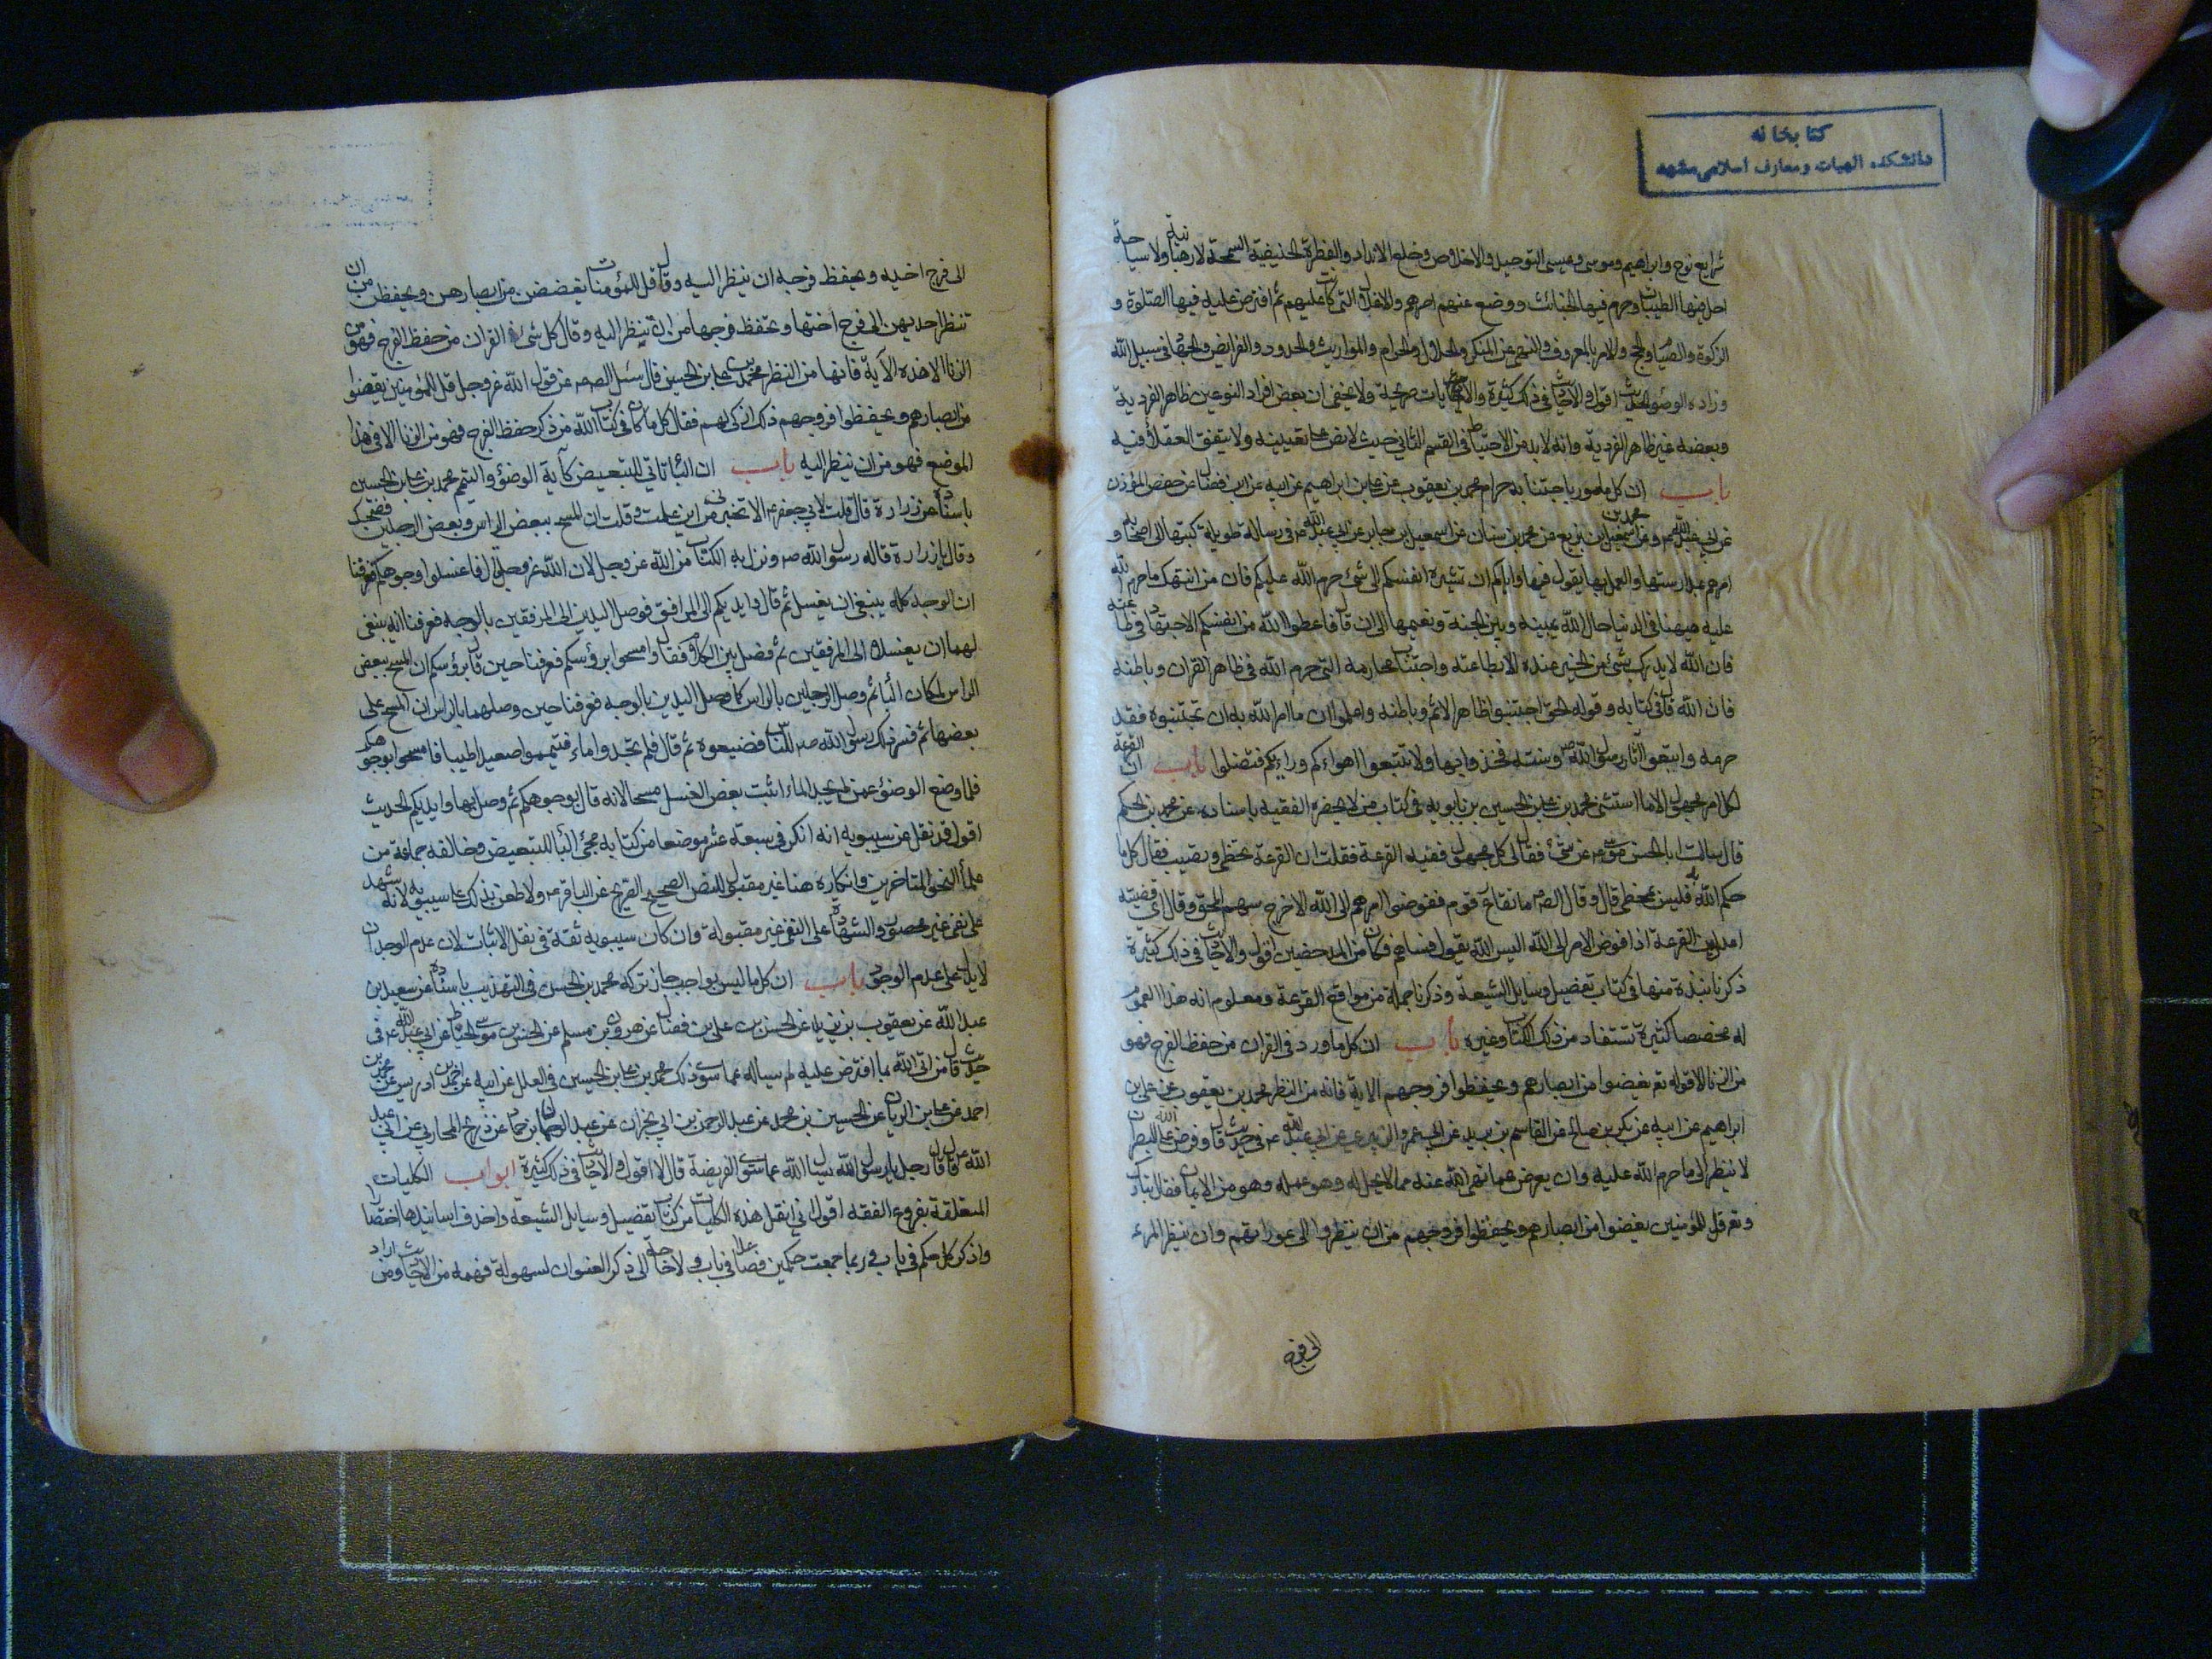 كتابخانه
دانشكده الهيات ومعارف اسلامى مشهد
شرايع نوح وابراهيم وموسى وعيسى التوحيد والاخلاص وخلع الانداد والفطرة الحنيفية السمحة لا رهبانية ولا سياحة
احل فيها الطيبات وحرم فيها الخبائث ووضع عنهم اصرهم والاغلال التى كانت عليهم ثم افترض عليه فيها الصلوة و
الزكوة والصيام والحج والامر بالمعروف والنهى عن المنكر والحلال والحرام والمواريث والحدود والفرايض والجهاد فى سبيل الله
وزاده الوضوء الحديث اقول والاحاديث فى ذلك كثيرة صريحة ولا يخفى ان بعض افراد النوعين ظاهر الفردية
وبعضه غير ظاهر الفردية وانه لا بد من الاحتياط فى القسم الثانى حيث لا نص على تعيينه ولا يتفق العقلاء فيه
باب ان كل مامور باجتنابه حرام محمد بن يعقوب عن على بن ابراهيم عن ابيه عن ابن فضال عن حفص المؤذن
عن ابى عبد الله ع وعن محمد بن اسمعيل بن بزيع عن محمد بن سنان عن اسمعيل بن جابر عن ابى عبد الله ع فى رسالة طويلة كتبها الى اصحابه و
امرهم بمدارستها والعمل بها يقول فيها واياكم ان تشره انفسكم الى شئ حرم الله عليكم فان من انتهك ما حرم الله
عليه ههنا فى الدنيا حال الله بينه وبين الجنة ونعيمها الى ان قال فاعطوا الله من انفسكم الاجتهاد فى طاعته
فان الله لا يدرك شئ من الخير عنده الا بطاعته واجتناب محارمه التى حرم الله فى ظاهر القران وباطنه
فان الله قال فى كتابه وقوله الحق اجتنبوا ظاهر الاثم وباطنه واعلموا ان ما امر الله به ان تجتنبوه فقد
حرمه واتبعوا آثار رسول الله ص وسنته فخذوا بها ولا تتبعوا اهواءكم ورايكم فتضلوا باب ان القرعة
لكل امر مجهول الا ما استثنى محمد بن على بن الحسين بن بابويه فى كتاب من لا يحضره الفقيه باسناده عن محمد بن الحكم
قال سالت ابا الحسن موسى ع عن شئ فقال لى كل مجهول ففيه القرعة فقلت ان القرعة تخطى وتصيب فقال كل ما
حكم الله به فليس بمخطى قال وقال الص ع ما تقارع قوم ففوضوا امرهم الى الله الا خرج سهم المحق وقال اى قضية
اعدل من القرعة اذا فوض الامر الى الله اليس الله يقول فساهم فكان من المدحضين اقول والاحاديث فى ذلك كثيرة
ذكرنا نبذة منها فى كتاب تفصيل وسايل الشيعة وذكرنا جملة من مواقع القرعة ومعلوم انه هذا العموم
له مخصصات كثيرة تستفاد من ذلك الكتاب وغيره باب ان كل ما ورد فى القران من حفظ الفرج فهو
من الزنا الا قوله تع يغضوا من ابصارهم ويحفظوا فروجهم الاية فانه من النظر محمد بن يعقوب عن على بن
ابراهيم عن ابيه عن بكر بن صالح عن القاسم بن بريد عن ابى عمرو الزبيرى عن ابى عبد الله ع فى حديث قال وفرض الله على البصر ان
لا ينظر الى ما حرم الله عليه وان يعرض عما نهى الله عنه مما لا يحل له وهو عمله وهو من الايمان فقال تبارك
وتع قل للمؤمنين يغضوا من ابصارهم ويحفظوا فروجهم من ان ينظروا الى عوراتهم وان ينظر المرء
الى فرج
الى فرج اخيه ويحفظ فرجه ان ينظر اليه وقال قل للمؤمنات يغضضن من ابصارهن ويحفظن من ان
تنظر احديهن الى فرج اختها وتحفظ فرجها من ان ينظر اليه وقال كل شئ فى القران من حفظ الفرج فهو من
الزنا الا هذه الآية فانها من النظر محمد بن على بن الحسين قال سئل الص ع عن قول الله عز وجل قل للمؤمنين يغضوا
من ابصارهم ويحفظوا فروجهم ذلك ازكى لهم فقال كل ما كان فى كتاب الله من ذكر حفظ الفرج فهو من الزنا الا فى هذا
الموضع فهو من ان ينظر اليه باب ان الباء تاتى للتبعيض كآية الوضوء والتيمم محمد بن على بن الحسين
باسناده عن زرارة قال قلت لابى جعفر ع الا تخبرنى من اين علمت وقلت ان المسح ببعض الراس وبعض الرجلين فضحك
وقال يا زرارة قاله رسول الله ص ونزل به الكتاب من الله عز وجل لان الله عز وجل قال فاغسلوا وجوهكم فعرفنا
ان الوجه كله ينبغى ان يغسل ثم قال وايديكم الى المرافق فوصل اليدين الى المرفقين بالوجه فعرفنا انه ينبغى
لهما ان يغسلا الى المرفقين ثم فصل بين الكلام فقال وامسحوا برؤسكم فعرفنا حين قال برؤسكم ان المسح ببعض
الراس لمكان الباء ثم وصل الرجلين بالراس كما وصل اليدين بالوجه فعرفنا حين وصلهما بالراس ان المسح على
بعضها ثم فسر ذلك رسول الله ص للناس فضيعوه ثم قال فلم تجدوا ماء فتيمموا صعيدا طيبا فامسحوا بوجوهكم
فلما وضع الوضوء عمن لم يجد الماء اثبت بعض الغسل مسحا لانه قال بوجوهكم ثم وصل بها وايديكم الحديث
اقول قد نقل عن سيبويه انه انكر فى سبعة عشر موضعا من كتابه مجئ الباء للتبعيض وخالفه جماعة من
علماء النحو المتاخرين وانكاره هنا غير مقبول للنص الصحيح الصريح عن الباقر ع ولا طعن بذلك على سيبويه لانه شهد
على نفى غير محصور والشهادة على النفى غير مقبولة وان كان سيبويه ثقة فى نقل الاثبات لان عدم الوجدان
لا يدل على عدم الوجود باب ان كل ما ليس بواجب جاز تركه محمد بن الحسن فى التهذيب باسناده عن سعد بن
عبد الله عن يعقوب بن يزيد عن الحسن بن على بن فضال عن هرون بن مسلم عن الحسن بن موسى الحناط عن ابى عبد الله ع فى
حديث قال من اتى الله بما افترض عليه لم يساله عما سوى ذلك محمد بن على بن الحسين فى العلل عن ابيه عن احمد بن ادريس عن محمد بن
احمد عن على بن الريان عن الحسين بن محمد عن عبد الرحمن بن ابى نجران عن عبد الرحمن بن حماد عن ذريح المحاربى عن ابى عبد
الله ع قال قال رجل يا رسول الله يسال الله عما سوى الفريضة قال لا اقول والاحاديث فى ذلك كثيرة ابواب الكليات
المتعلقة بفروع الفقه اقول انى انقل هذه الكليات من كتاب تفصيل وسايل الشيعة واحذف اسانيدها اختصارا
واذكر كل حكم فى باب وربما جمعت حكمين فصاعدا فى باب ولا حاجة الى ذكر العنوان لسهولة فهمه من الاحاديث ومن اراد